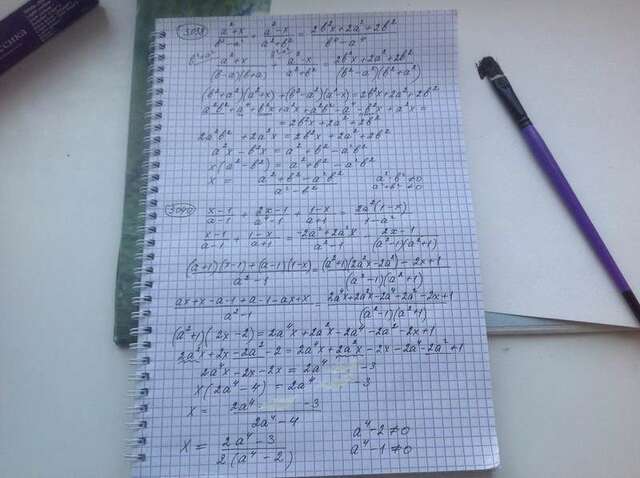 3038) (a²+x)/(b²-a²) + (a²-x)/(a²+b²) = (2b²x+2a²+2b²)/(b⁴-a⁴)
(a²+x)/((b-a)(b+a)) (a²-x)/(a²+b²) (2b²x+2a²+2b²)/((b²-a²)(b²+a²))
(b²+a²)(a²+x)+(b²-a²)(a²-x)=2b²x+2a²+2b²
a²b²+a⁴+b²x+a²x+a²b²-a⁴-b²x+a²x=
=2b²x+2a²+2b²
2a²b²+2a²x=2b²x+2a²+2b²
a²x-b²x=a²+b²-a²b²
x(a²-b²)=a²+b²-a²b²
x = (a²+b²-a²b²)/(a²-b²) a²-b²≠0
a²+b²≠0
3040) (x-1)/(a-1) + (2x-1)/(a⁴-1) + (1-x)/(a+1) = 2a²(1-x)/(1-a²)
(x-1)/(a-1) + (1-x)/(a+1) = (-2a²+2a²x)/(a²-1) - (2x-1)/((a²-1)(a²+1))
((a+1)(x-1)+(a-1)(1-x))/(a²-1) = ((a²+1)(2a²x-2a²)-2x+1)/((a²-1)(a²+1))
(ax+x-a-1+a-1-ax+x)/(a²-1) = (2a⁴x+2a²x-2a⁴-2a²-2x+1)/((a²-1)(a²+1))
(a²+1)(2x-2)=2a⁴x+2a²x-2a⁴-2a²-2x+1
2a²x+2x-2a²-2=2a⁴x+2a²x-2x-2a⁴-2a²+1
2a⁴x-2x-2x=2a⁴ -3
x(2a⁴-4)=2a⁴ -3
x = (2a⁴ -3)/(2a⁴-4)
x = (2a⁴-3)/(2(a⁴-2)) a⁴-2≠0
a⁴-1≠0